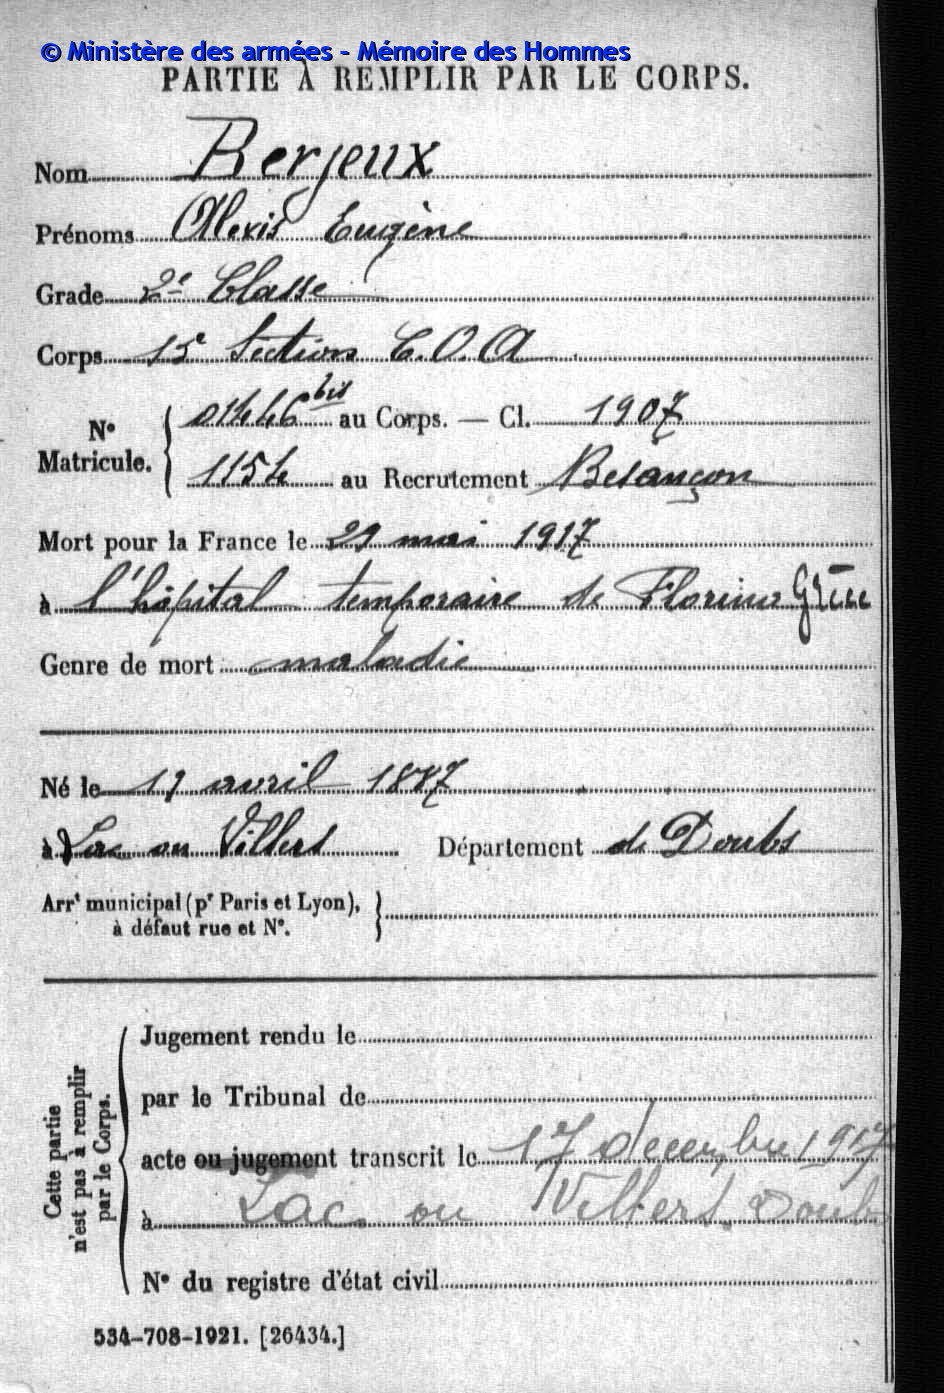 © Ministère des armées - Mémoire des Hommes
PARTIE À REMPLIR PAR LE CORPS.
Nom Berjeux
Prénoms Alexis Eugène
Grade 2e Classe
Corps 15e Section C.O.A
N° Matricule. 01446 bis au Corps. — Cl. 1907
1154 au Recrutement Besançon
Mort pour la France le 29 mai 1917
à l'hôpital temporaire de Florina Grèce
Genre de mort maladie
Né le 19 avril 1887
à Lac ou Villers Département de Doubs
Arrt municipal (pr Paris et Lyon),
à défaut rue et N°.
Cette partie
n'est pas à remplir
par le Corps.
Jugement rendu le
par le Tribunal de
acte ou jugement transcrit le 17 décembre 1917
à Lac ou Villers. Doubs
N° du registre d'état civil
534-708-1921. [26434.]